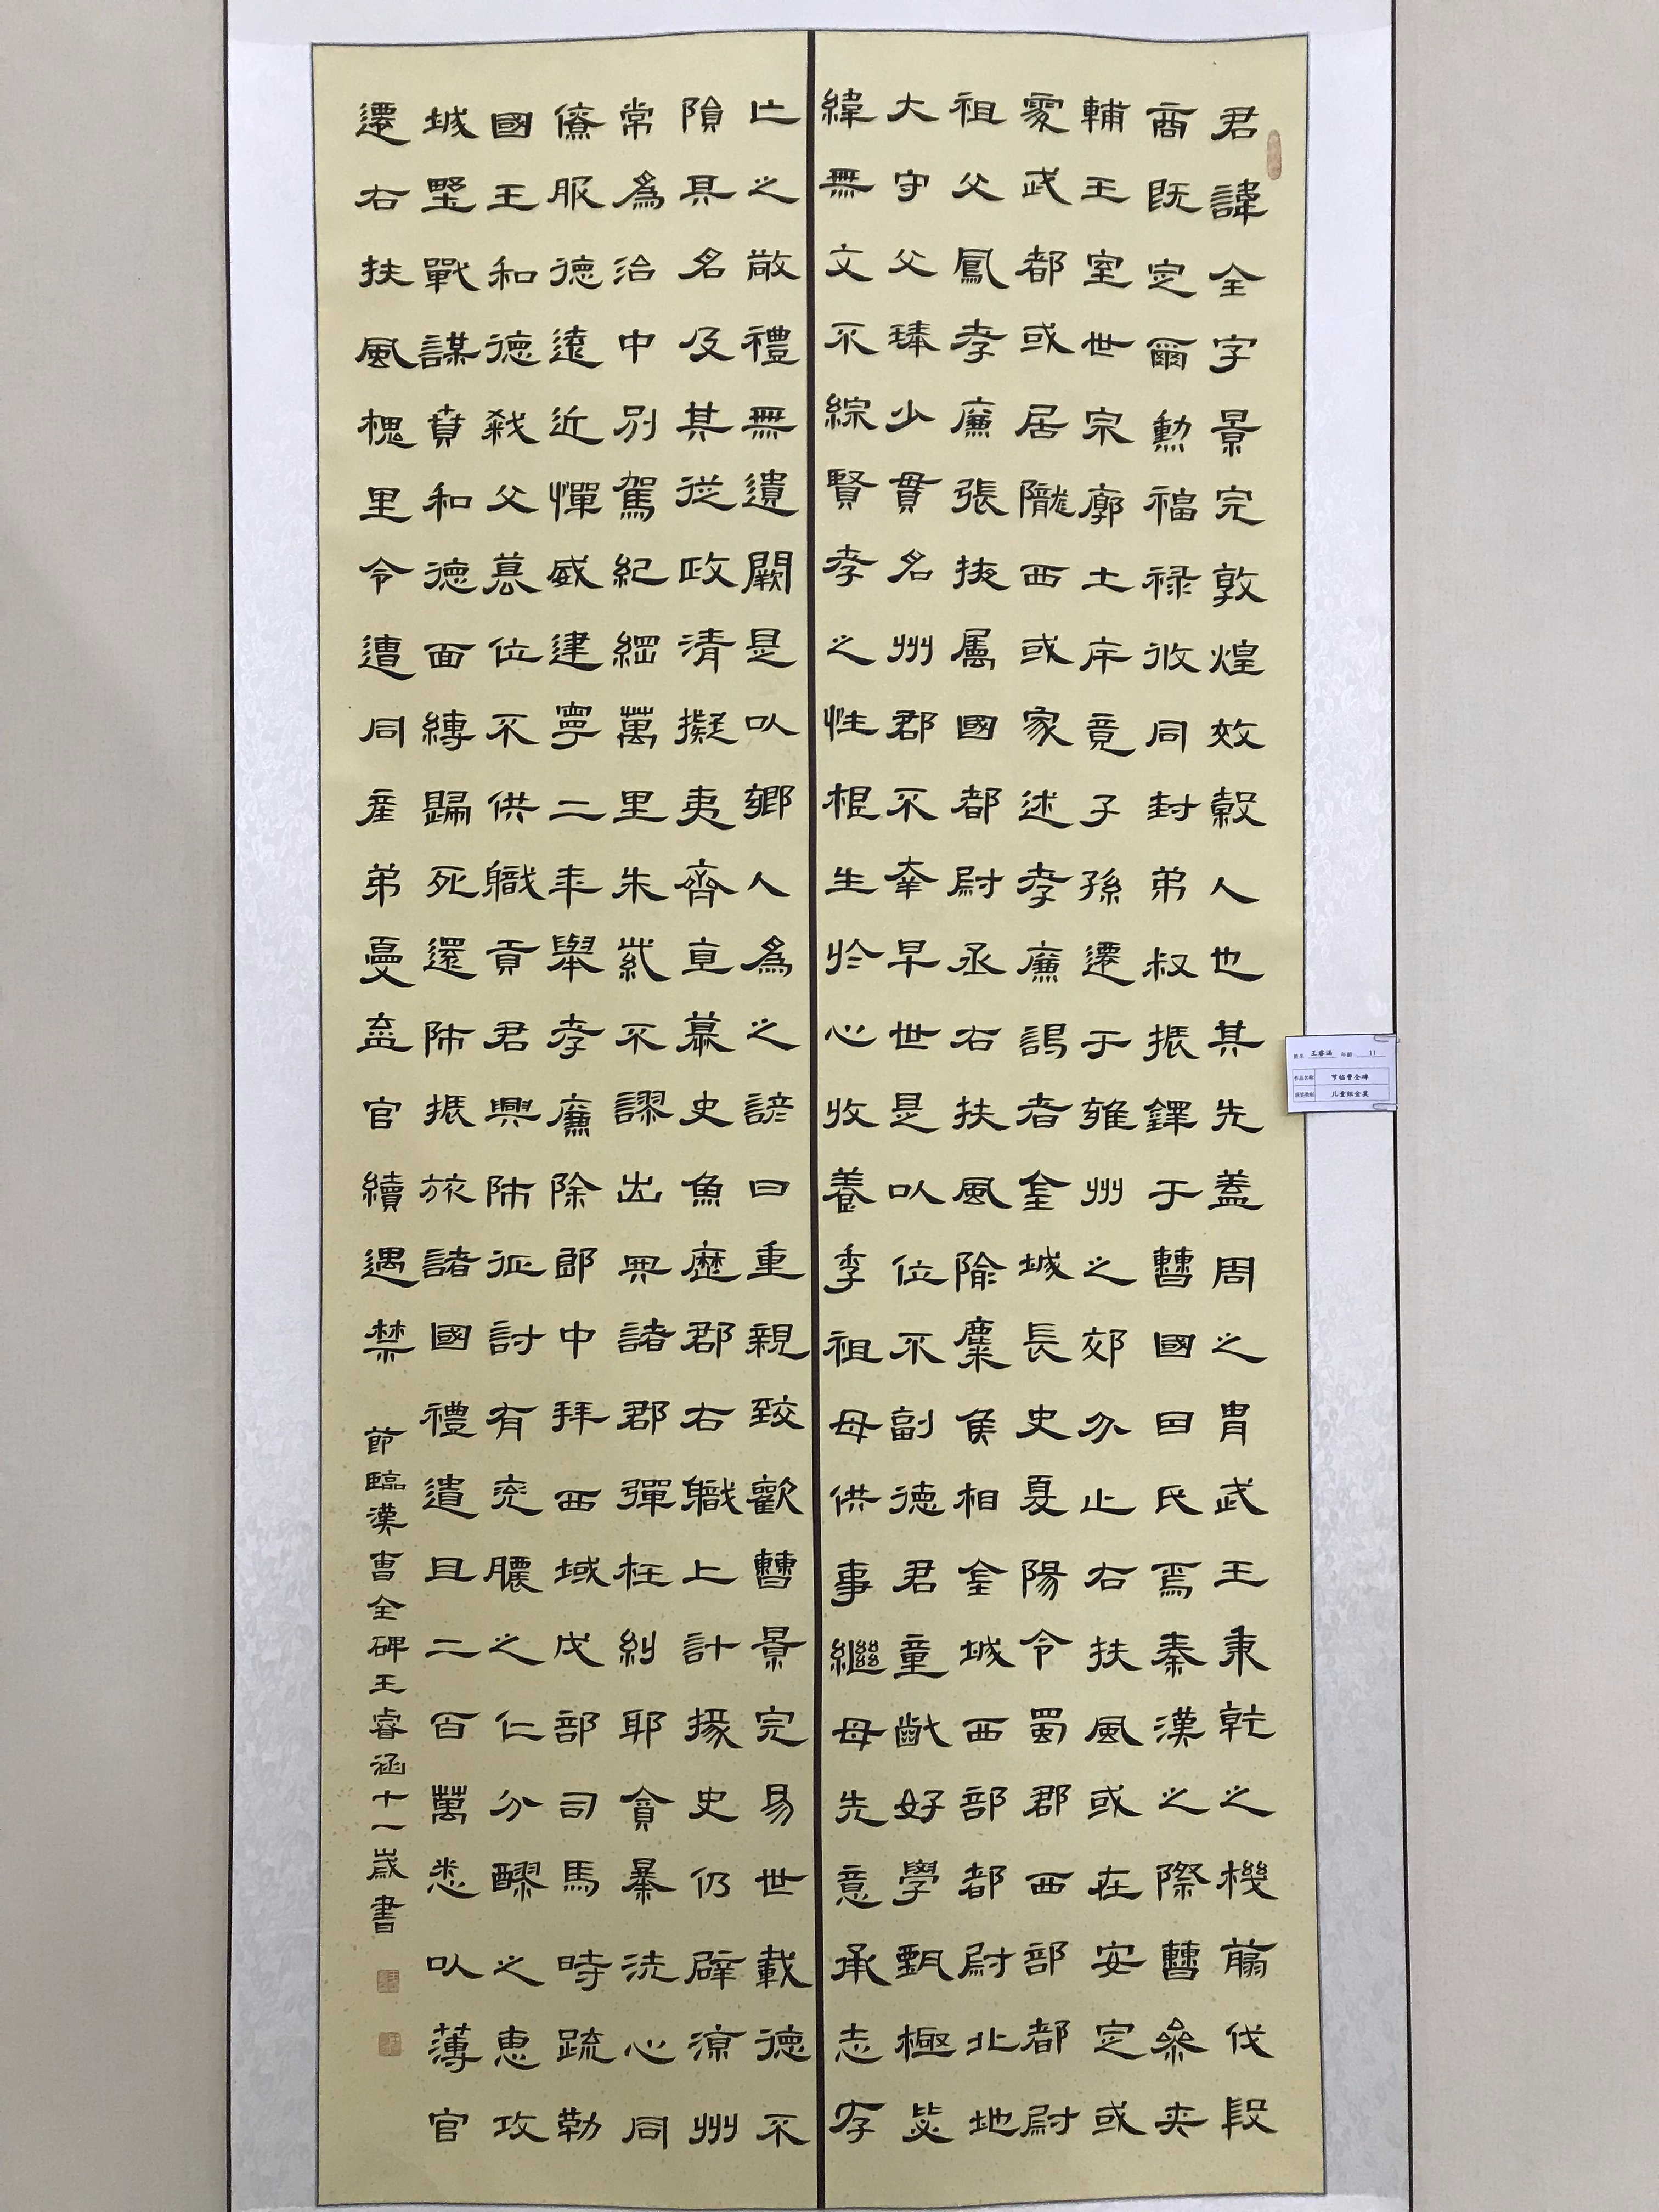 君諱全字景完敦煌效穀人也其先蓋周之胄武王秉乾之機翦伐殷
商既定爾勳福祿攸同封弟叔振鐸于曹國因氏焉秦漢之際曹參夾
輔王室世宗廓土斥竟子孫遷于雍州之郊分止右扶風或在安定或
處武都或居隴西或家述孝廉謁者金城長史夏陽令蜀郡西部都尉
祖父鳳孝廉張掖屬國都尉丞右扶風隃麋侯相金城西部都尉北地
大守父琫少貫名州郡不幸早世是以位不副德君童齔好學甄極毖
緯無文不綜賢孝之性根生於心收養季祖母供事繼母先意承志存
亡之敬禮無遺闕是以鄉人為之諺曰重親致歡曹景完易世載德不
隕其名及其從政清擬夷齊直慕史魚歷郡右職上計掾史仍辟涼州
常為治中別駕紀綱萬里朱紫不謬出典諸郡彈枉糾邪貪暴洗心同
僚服德遠近憚威建寧二年舉孝廉除郎中拜西域戊部司馬時疏勒
國王和德弒父篡位不供職貢君興師征討有兗膿之仁分醪之惠攻
城野戰謀賁和德面縛歸死還師振旅諸國禮遺且二百萬悉以薄官
遷右扶風槐里令遭同產弟憂棄官續遇禁
節臨漢曹全碑王睿涵十一歲書
姓名 王睿涵 年龄 11
作品名称 节临曹全碑
获奖类别 儿童组金奖